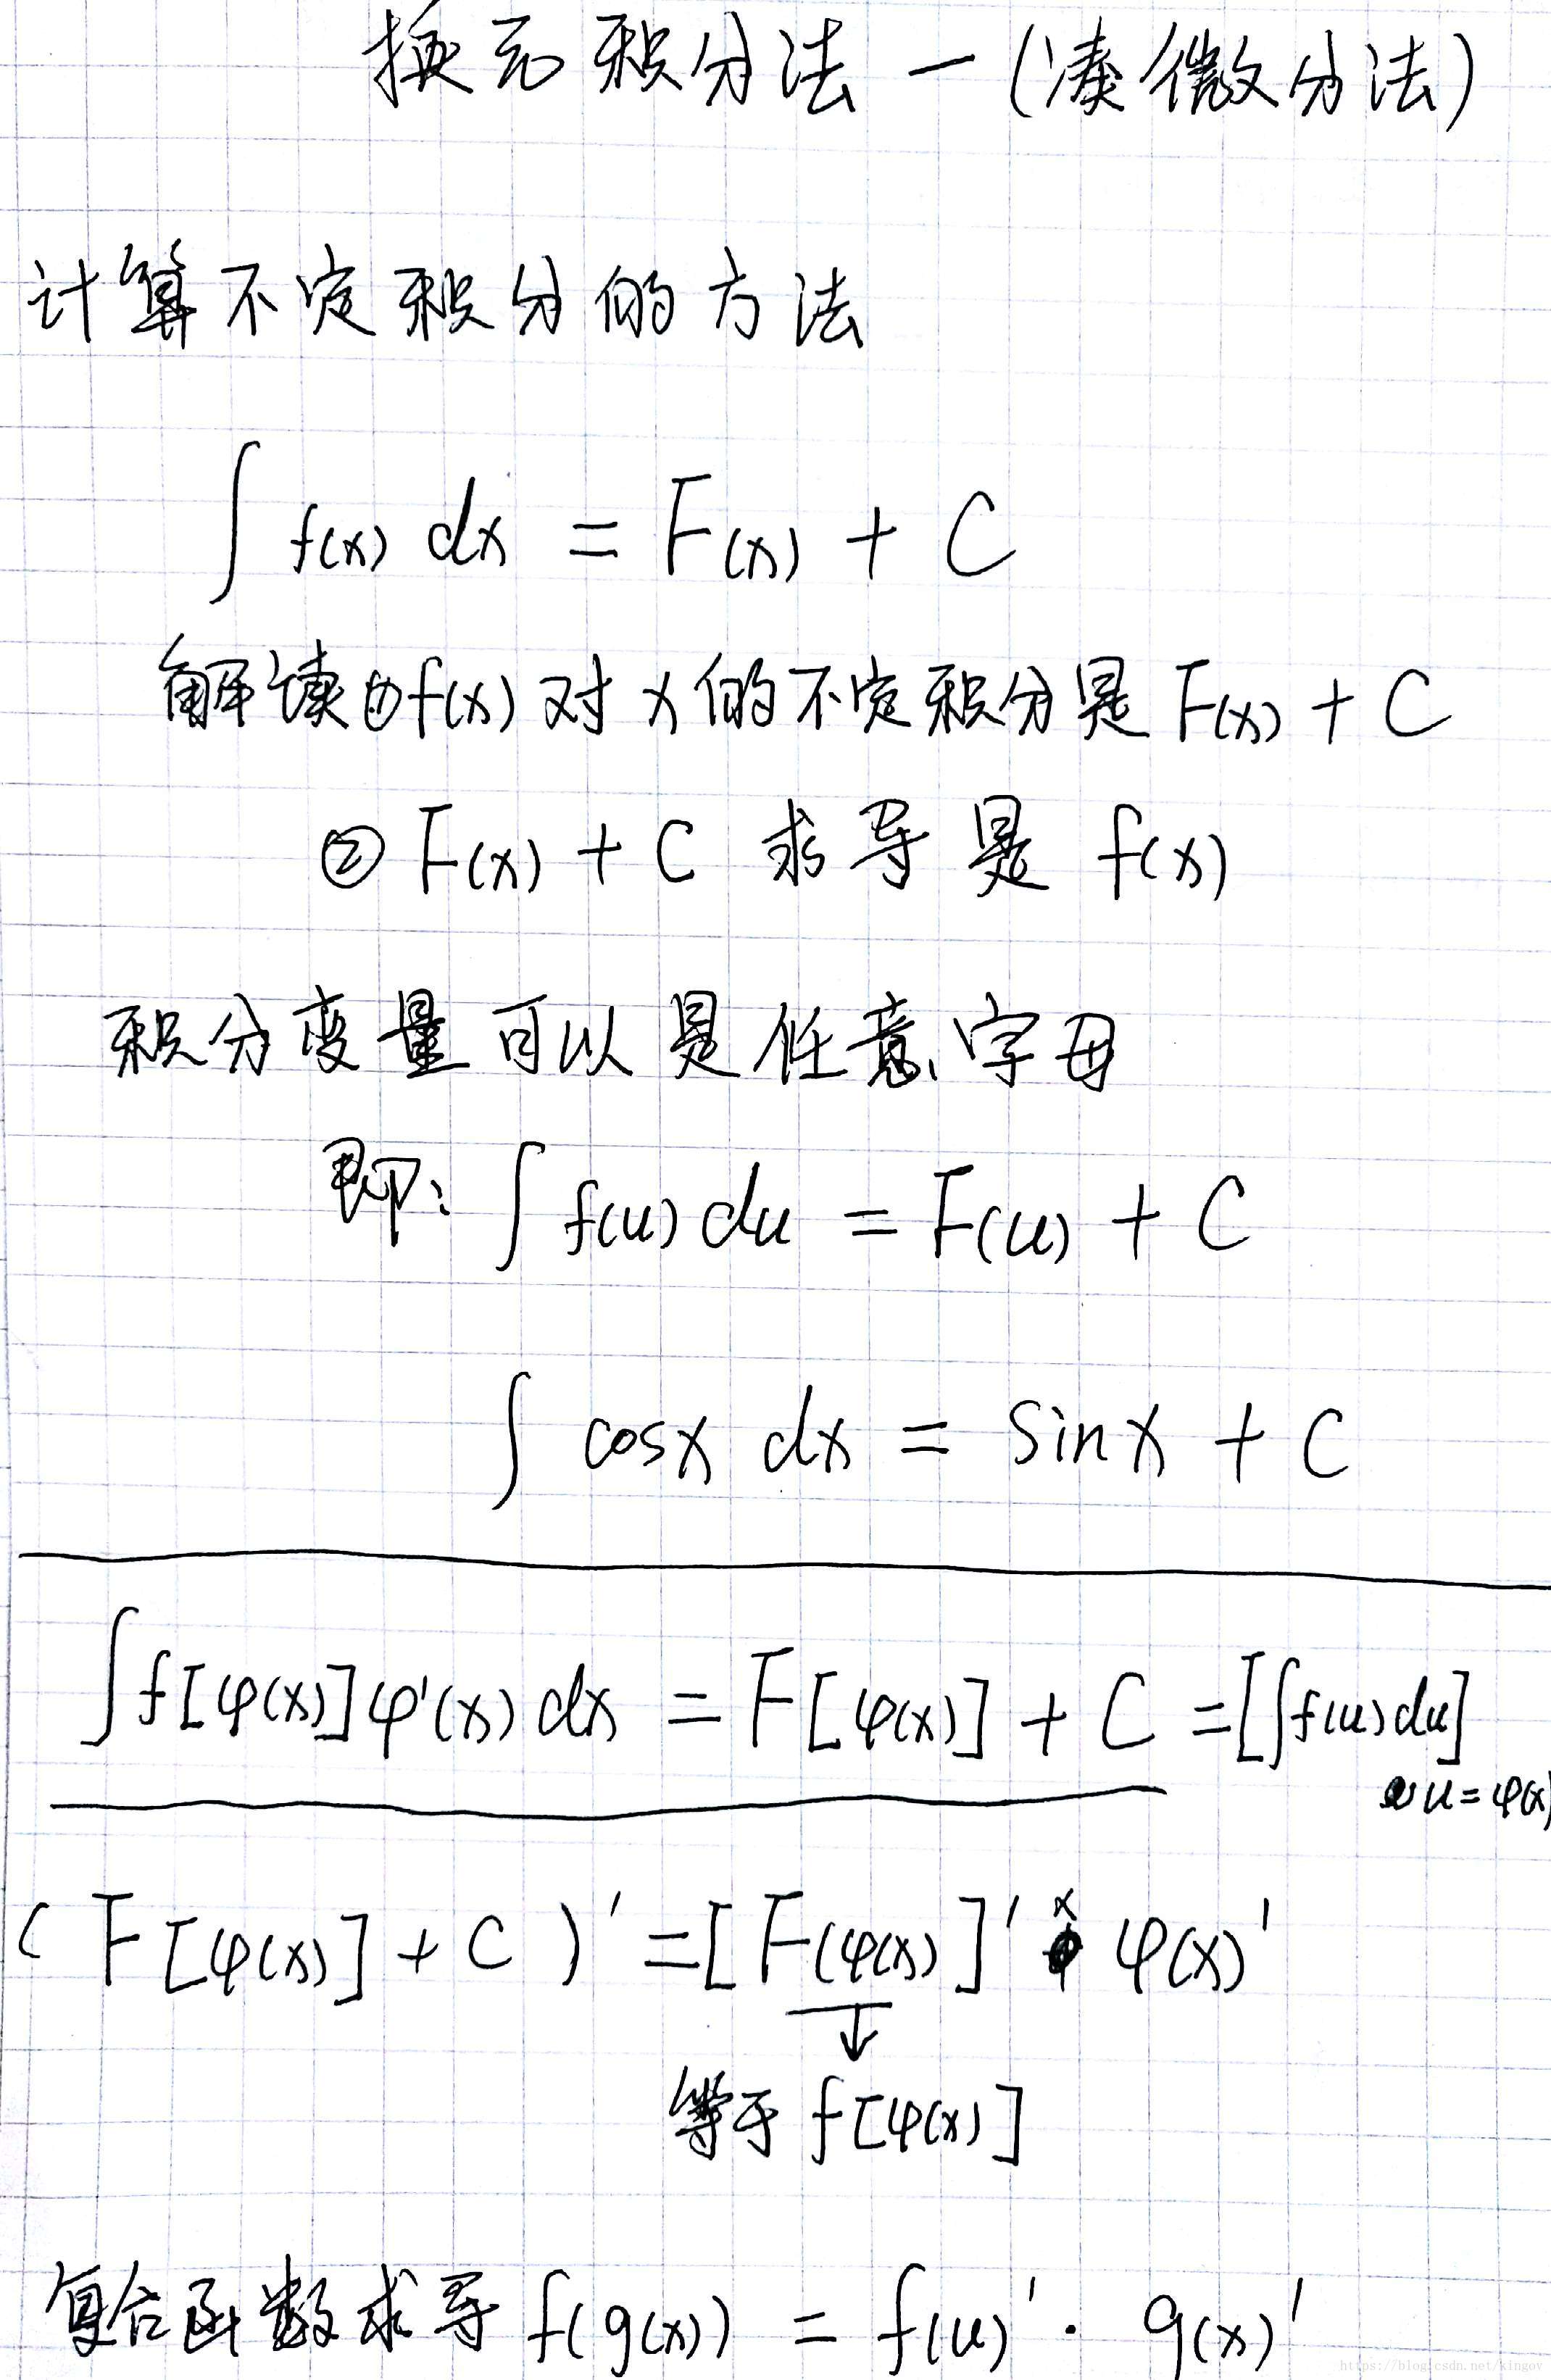 换元积分法一(凑微分法)
计算不定积分的方法
∫ f(x) dx = F(x) + C
解读①f(x)对x的不定积分是F(x) + C
② F(x) + C 求导是 f(x)
积分变量可以是任意字母
即: ∫ f(u) du = F(u) + C
∫ cosx dx = sinx + C
∫f[φ(x)]φ'(x) dx = F[φ(x)] + C =[∫f(u)du]
u=φ(x)
( F[φ(x)] + C )' =[F(φ(x)]' x φ(x)'
↓
等于 f[φ(x)]
复合函数求导 f(g(x)) = f(u)' · g(x)'
https://blog.csdn.net/kingov